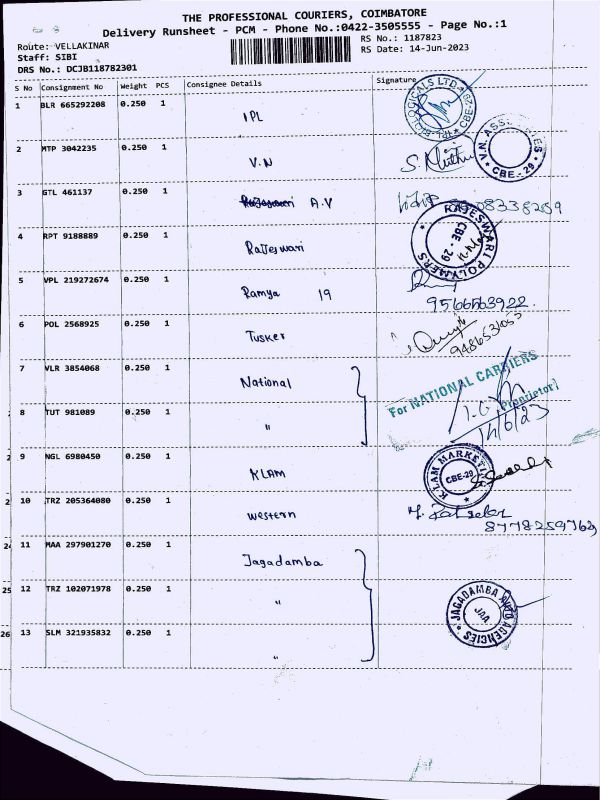 THE PROFESSIONAL COURIERS, COIMBATORE
Delivery Runsheet - PCM - Phone No.:0422-3505555 - Page No.:1
Route: VELLAKINAR
RS No.: 1187823
Staff: SIBI
RS Date: 14-Jun-2023
DRS No.: DCJB118782301
S No Consignment No Weight PCS Consignee Details Signature
1 BLR 665292208 0.250 1 IPL
2 MTP 3042235 0.250 1 V.N
V.N. ASSOCIATES CBE-29
3 GTL 461137 0.250 1 A.V
4 RPT 9188889 0.250 1 Rajeswari
RAJESWARI POLYMERS CBE-29
5 VPL 219272674 0.250 1 Ramya 19
9566563922.
6 POL 2568925 0.250 1 Tusker
7 VLR 3854068 0.250 1 National
For NATIONAL CARRIERS
Proprietor
8 TUT 981089 0.250 1 "
14/6/23
9 NGL 6980450 0.250 1 KLAM
KLAM MARKETING CBE-29
10 TRZ 205364080 0.250 1 Western
8778259763
24 11 MAA 297901270 0.250 1 Jagadamba
25 12 TRZ 102071978 0.250 1 "
JAGADAMBA AUTO AGENCIES JAA
26 13 SLM 321935832 0.250 1 "